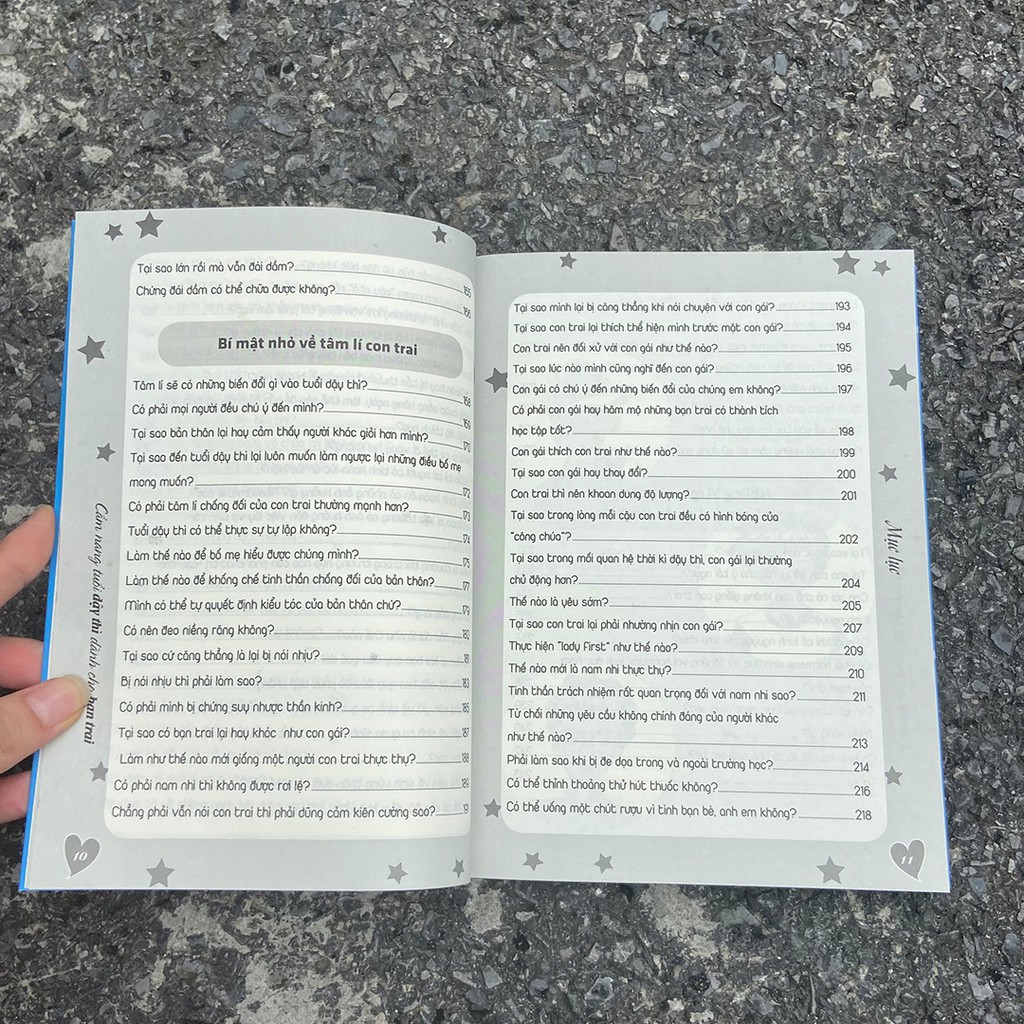 Tại sao lớn rồi mà vẫn đái dầm? 165
Chứng đái dầm có thể chữa được không? 166
Bí mật nhỏ về tâm lí con trai
Tâm lí sẽ có những biến đổi gì vào tuổi dậy thì? 168
Có phải mọi người đều chú ý đến mình? 169
Tại sao bản thân lại hay cảm thấy người khác giỏi hơn mình? 170
Tại sao đến tuổi dậy thì lại luôn muốn làm ngược lại những điều bố mẹ
mong muốn? 172
Có phải tâm lí chống đối của con trai thường mạnh hơn? 173
Tuổi dậy thì có thể thực sự tự lập không? 174
Làm thế nào để bố mẹ hiểu được chúng mình? 175
Làm thế nào để khống chế tinh thần chống đối của bản thân? 177
Mình có thể tự quyết định kiểu tóc của bản thân chứ? 179
Có nên đeo niềng răng không? 180
Tại sao cứ căng thẳng là lại bị nói nhịu? 181
Bị nói nhịu thì phải làm sao? 183
Có phải mình bị chứng suy nhược thần kinh? 185
Tại sao có bạn trai lại hay khóc như con gái? 187
Làm như thế nào mới giống một người con trai thực thụ? 188
Có phải nam nhi thì không được rơi lệ? 189
Chẳng phải vẫn nói con trai thì phải dũng cảm kiên cường sao? 19
Cẩm nang tuổi dậy thì dành cho bạn trai
10
Tại sao mình lại bị căng thẳng khi nói chuyện với con gái? 193
Tại sao con trai lại thích thể hiện mình trước mặt con gái? 194
Con trai nên đối xử với con gái như thế nào? 195
Tại sao lúc nào mình cũng nghĩ đến con gái? 196
Con gái có chú ý đến những biến đổi của chúng em không? 197
Có phải con gái hay hâm mộ những bạn trai có thành tích
học tập tốt? 198
Con gái thích con trai như thế nào? 199
Tại sao con gái hay thay đổi? 200
Con trai thì nên khoan dung độ lượng? 201
Tại sao trong lòng mỗi cậu con trai đều có hình bóng của
"công chúa"? 202
Tại sao trong mối quan hệ thời kì dậy thì, con gái lại thường
chủ động hơn? 204
Thế nào là yêu sớm? 205
Tại sao con trai lại phải nhường nhịn con gái? 207
Thực hiện "lady first" như thế nào? 209
Thế nào mới là nam nhi thực thụ? 210
Tinh thần trách nhiệm rất quan trọng đối với nam nhi sao? 211
Từ chối những yêu cầu không chính đáng của người khác
như thế nào? 213
Phải làm sao khi bị đe dọa trong và ngoài trường học? 214
Có thể thỉnh thoảng thử hút thuốc không? 216
Có thể uống một chút rượu vì tình bạn bè, anh em không? 218
Mục lục
11